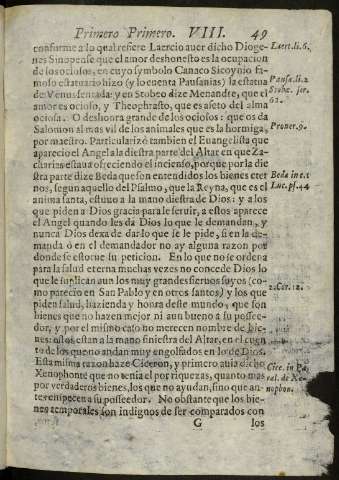 Primero Primero. VIII. 49
conforme a lo qual refiere Laercio auer dicho Dioge- Laert.li.6.
nes Sinopense que el amor deshonesto es la ocupacion
de los ociosos, en cuyo symbolo Canaco Sicoynio fa-
moso estatuario hizo (y lo cuenta Pausanias) la estatua Pausa.li.2
de Venus sentada: y en Stobeo dize Menandre, que el Stobe. ser.
amor es ocioso, y Theophrasto, que es afeto del alma 62.
ociosa. O deshonra grande de los ociosos: que os da
Salomon al mas vil de los animales que es la hormiga, Prouer.9.
por maestro. Particularizè tambien el Euangelista que
aparecio el Angel a la diestra parte del Altar en que Za-
charias estaua ofreciendo el incienso, porque por la die
stra parte dize Beda que son entendidos los bienes eter Beda in c.1
nos, segun aquello del Psalmo, que la Reyna, que es el Luc.ps.44
anima santa, estuuo a la mano diestra de Dios: y a los
que piden a Dios gracia para le seruir, a estos aparece
el Angel quando les da Dios lo que le demandan, y
nunca Dios dexa de darlo que se le pide, si en la de-
manda o en el demandador no ay alguna razon por
donde se estorue su peticion. En lo que no se ordena
para la salud eterna muchas vezes no concede Dios lo
que le suplican aun los muy grandes sieruos suyos (co- 2.Cor.12.
mo parecio en San Pablo y en otros santos) y los que
piden salud, hazienda y honra deste mundo, que son
bienes que no hazen mejor ni aun bueno a su possee-
dor, y por el mismo caso no merecen nombre de bie-
nes: estos estan a la mano siniestra del Altar, en el cuen
to de los que no andan muy engolfados en lo de Dios.
Esta misma razon haze Ciceron, y primero auia dicho Cice. in Pa
Xenophonte que no tenia el por riquezas, quanto mas rad. de Xe
por verdaderos bienes, los que no ayudan, sino que an- nophon.
tes empecen a su posseedor. No obstante que los bie-
nes temporales son indignos de ser comparados con
G los